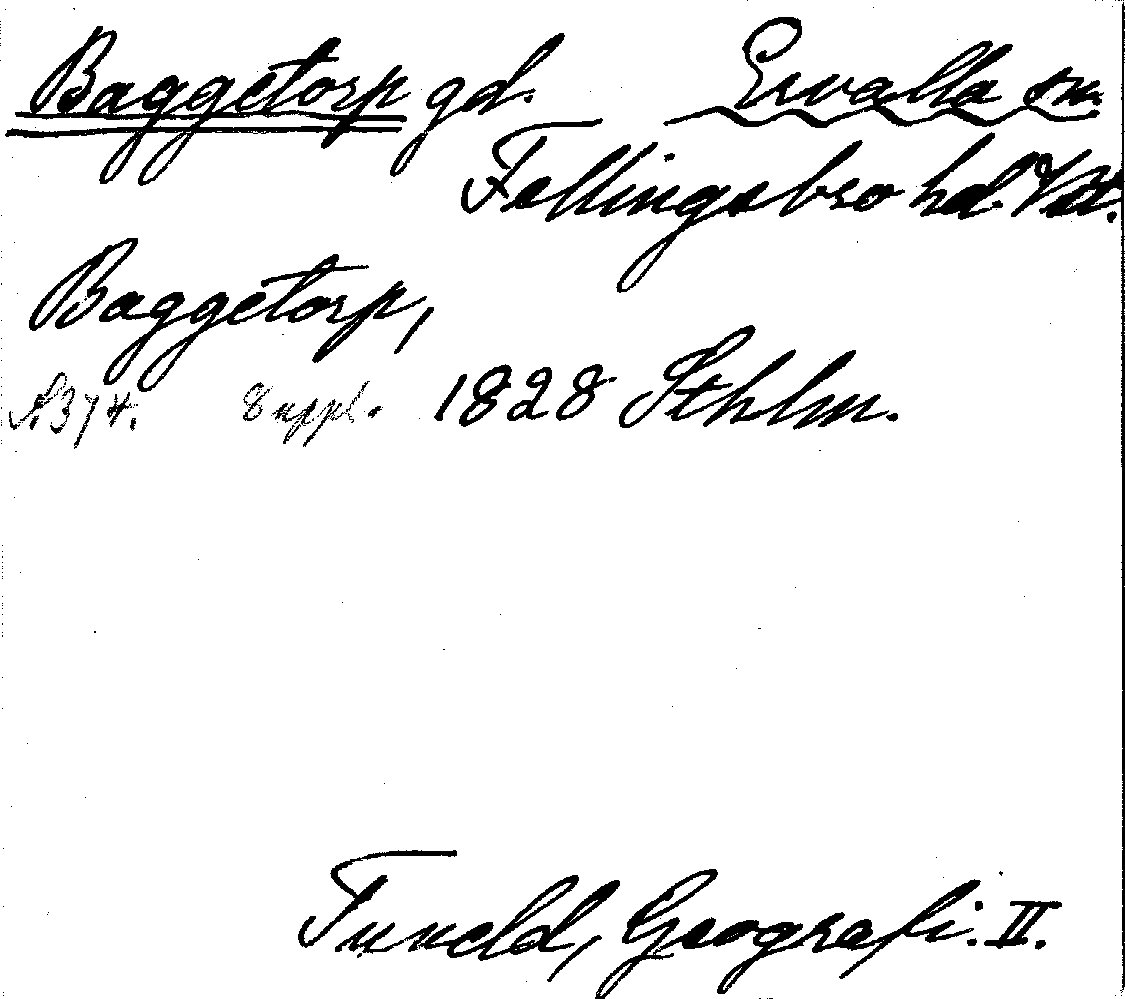 Baggetorp gd. Ervalla sn.
Fellingsbro hd. Vstm.
Baggetorp,
A374. Suppl. 1828 Sthlm.
Tuneld, Geografi. II.